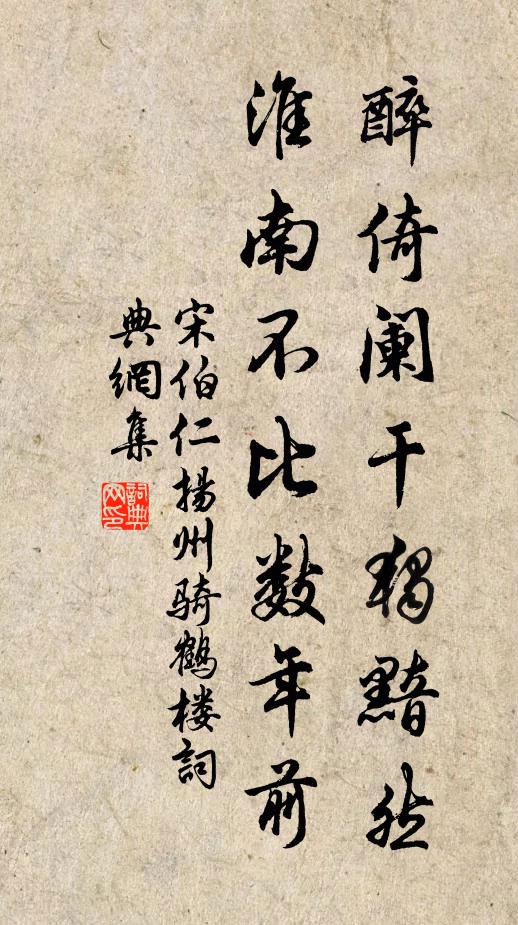 醉倚阑干独黯然
淮南不比数年前
宋伯仁扬州骑鹤楼詞
典網集
詞典网印